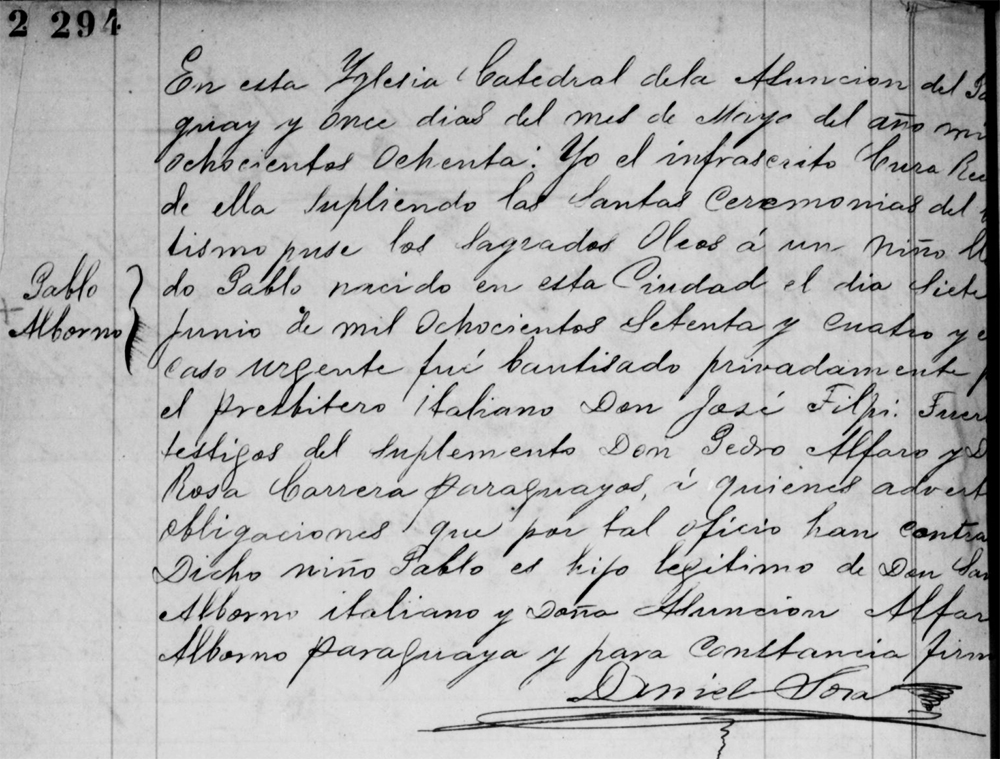 2 294
En esta Yglesia Catedral dela Asuncion del Pa
guay y once dias del mes de Mayo del año mi
ochocientos ochenta: Yo el infrascrito Cura Rec
de ella supliendo las Santas Ceremonias del
tismo puse los Sagrados Oleos á un niño lla
do Pablo nacido en esta Ciudad el dia Siete
Junio de mil ochocientos setenta y cuatro y e
caso urgente fué bautisado privadamente p
el presbitero italiano Don José Filpi. Fuer
testigos del suplemento Don Pedro Alfaro y D
Rosa Carrera paraguayos, á quienes advert
obligaciones que por tal oficio han contra
Dicho niño Pablo es hijo legitimo de Don San
Alborno italiano y Doña Asuncion Alfar
Alborno paraguaya y para constancia firm
Daniel Sosa
Pablo
Alborno